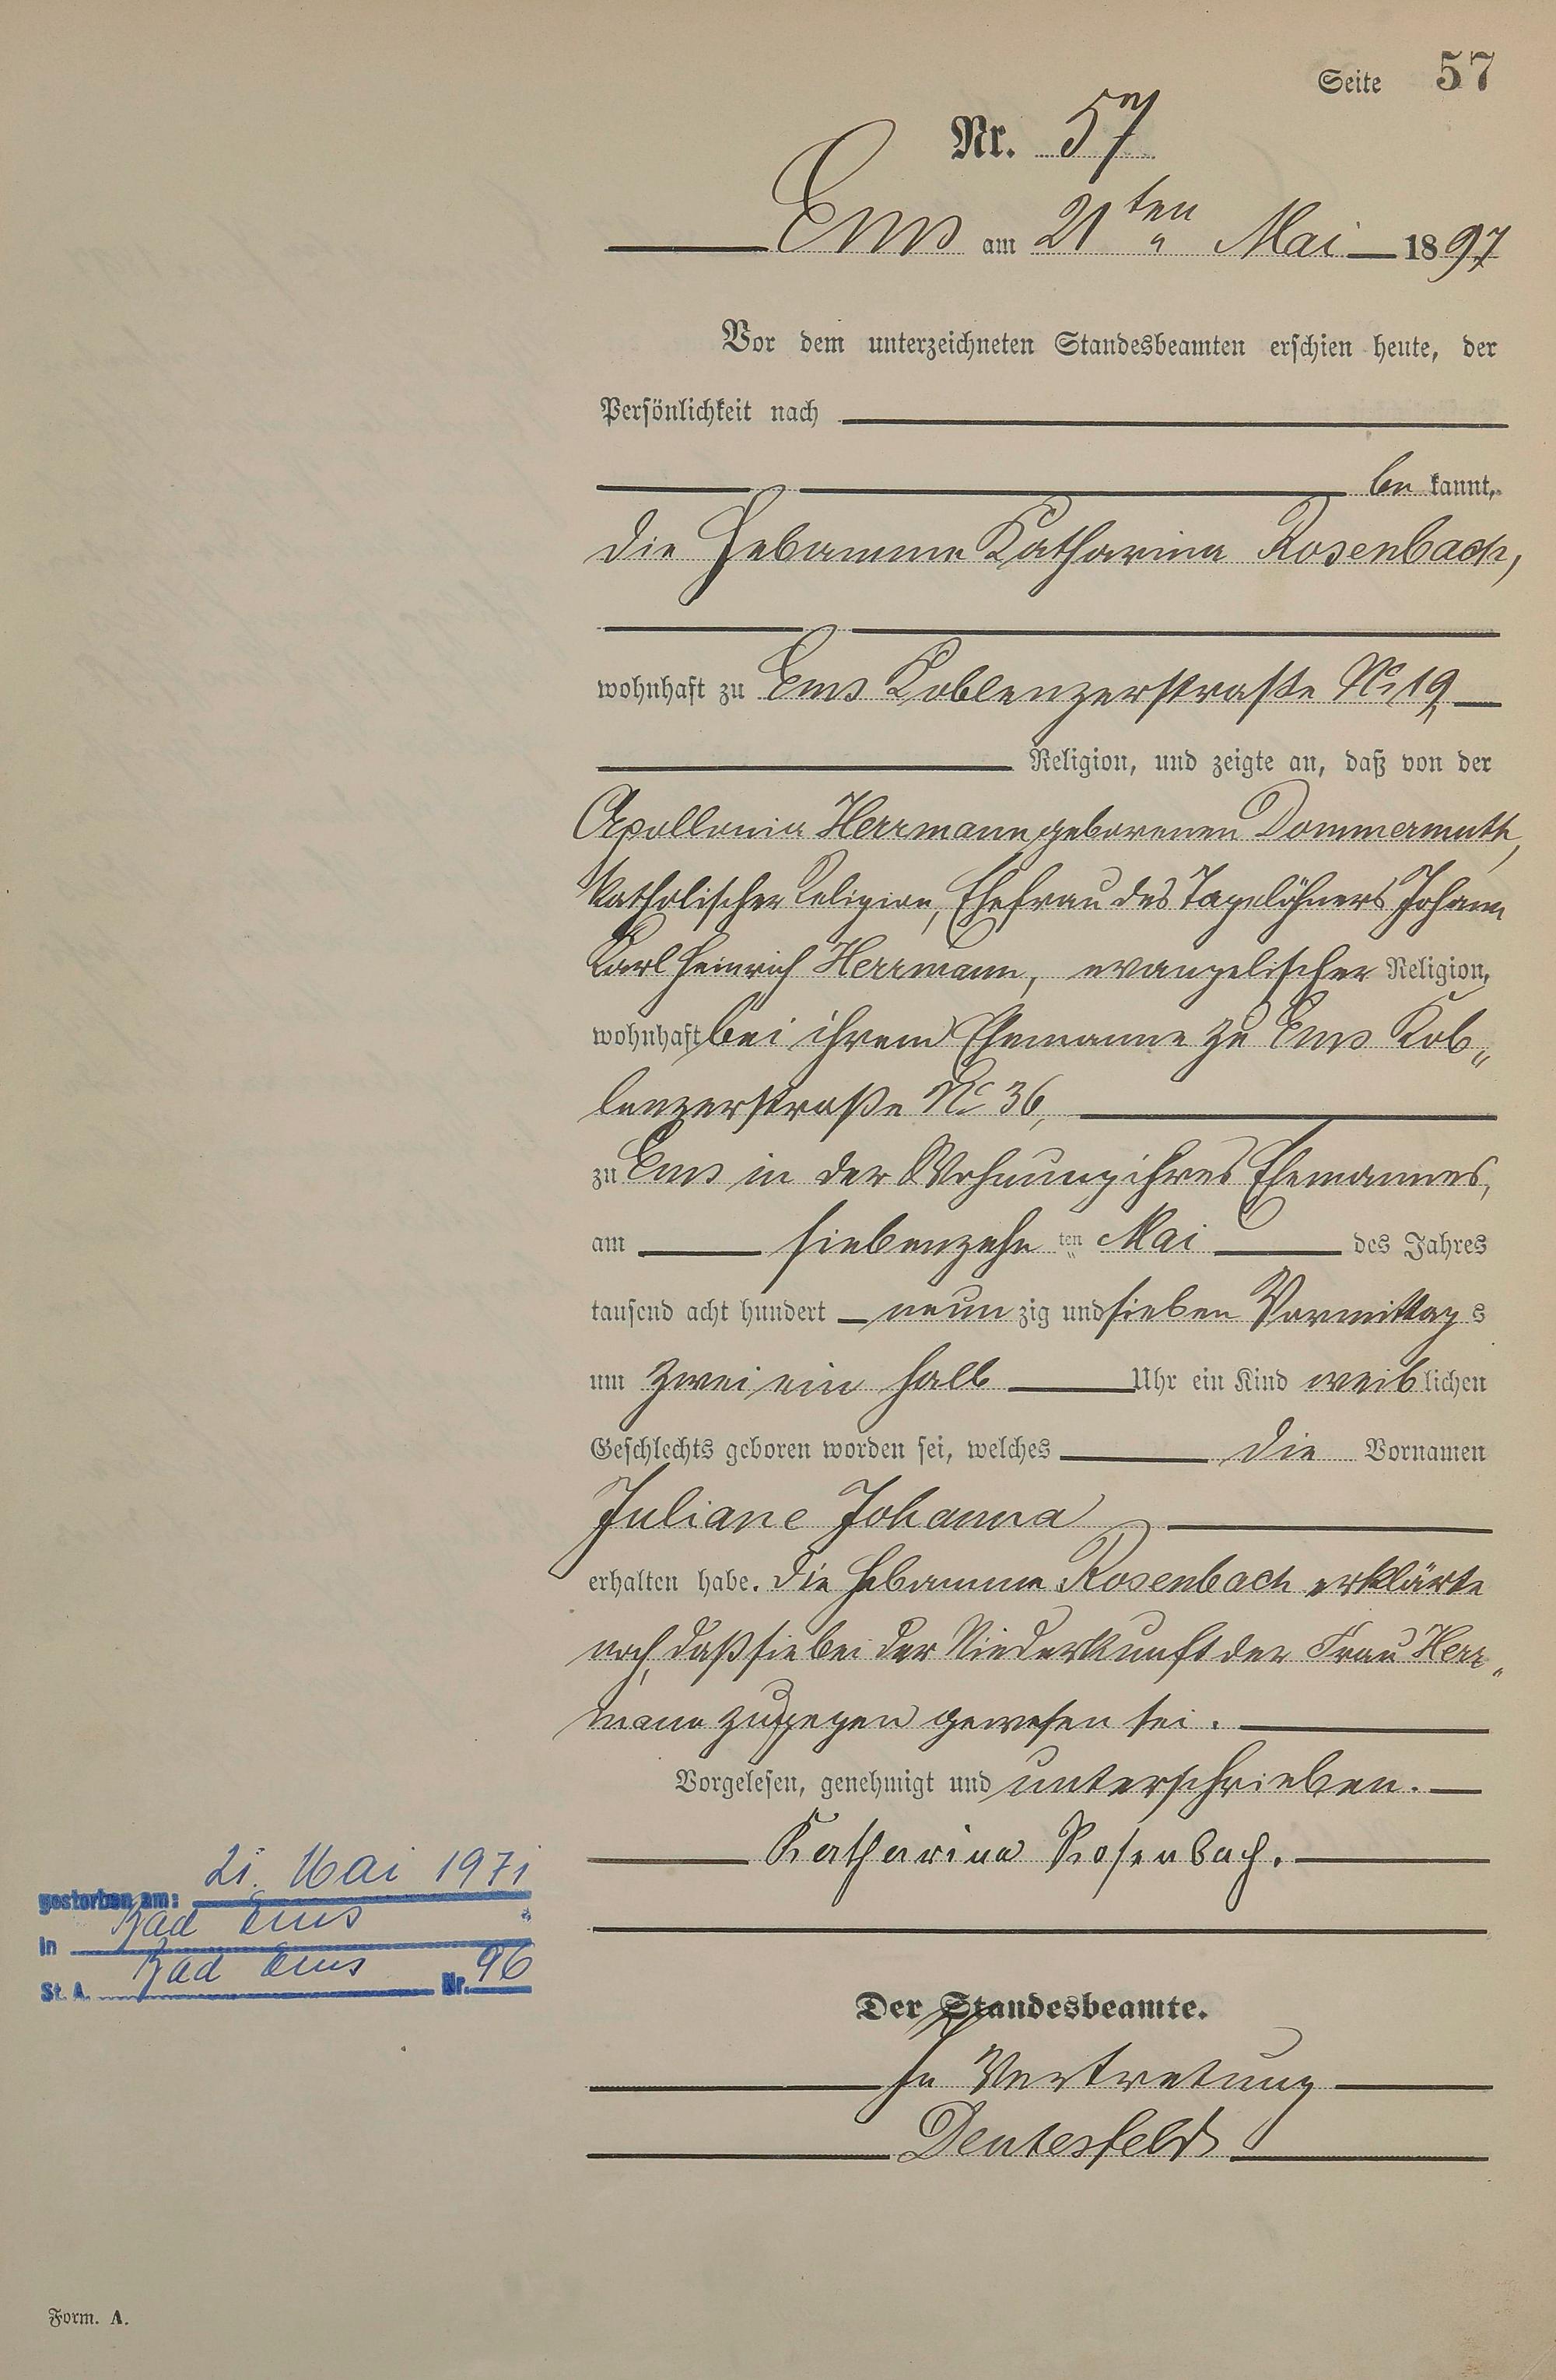 Seite 57
Nr. 57
Ems am 21ten Mai 1897
Vor dem unterzeichneten Standesbeamten erschien heute, der
Persönlichkeit nach
be kannt,
die Hebamme Katharina Rosenbach,
wohnhaft zu Ems Koblenzerstraße No 19,
Religion, und zeigte an, daß von der
Apollonia Herrmann geborenen Dommermuth,
katholischer Religion, Ehefrau des Tagelöhners Johann
Karl Heinrich Herrmann, evangelischer Religion,
wohnhaft bei ihrem Ehemanne zu Ems Kob„
lenzerstraße No 36,
zu Ems in der Wohnung ihres Ehemannes,
am siebenzehn ten Mai des Jahres
tausend acht hundert neun zig und sieben Vormittag s
um zwei ein halb Uhr ein Kind weib lichen
Geschlechts geboren worden sei, welches die Vornamen
Juliane Johanna
erhalten habe. Die Hebamme Rosenbach erklärte
noch, daß sie bei der Niederkunft der Frau Herr„
mann zugegen gewesen sei.
Vorgelesen, genehmigt und unterschrieben.
Katharina Rosenbach.
gestorben am: 21. Mai 1971
in Bad Ems
St. A. Bad Ems Nr. 96
Der Standesbeamte.
In Vertretung
Deutesfeld
Form. A.